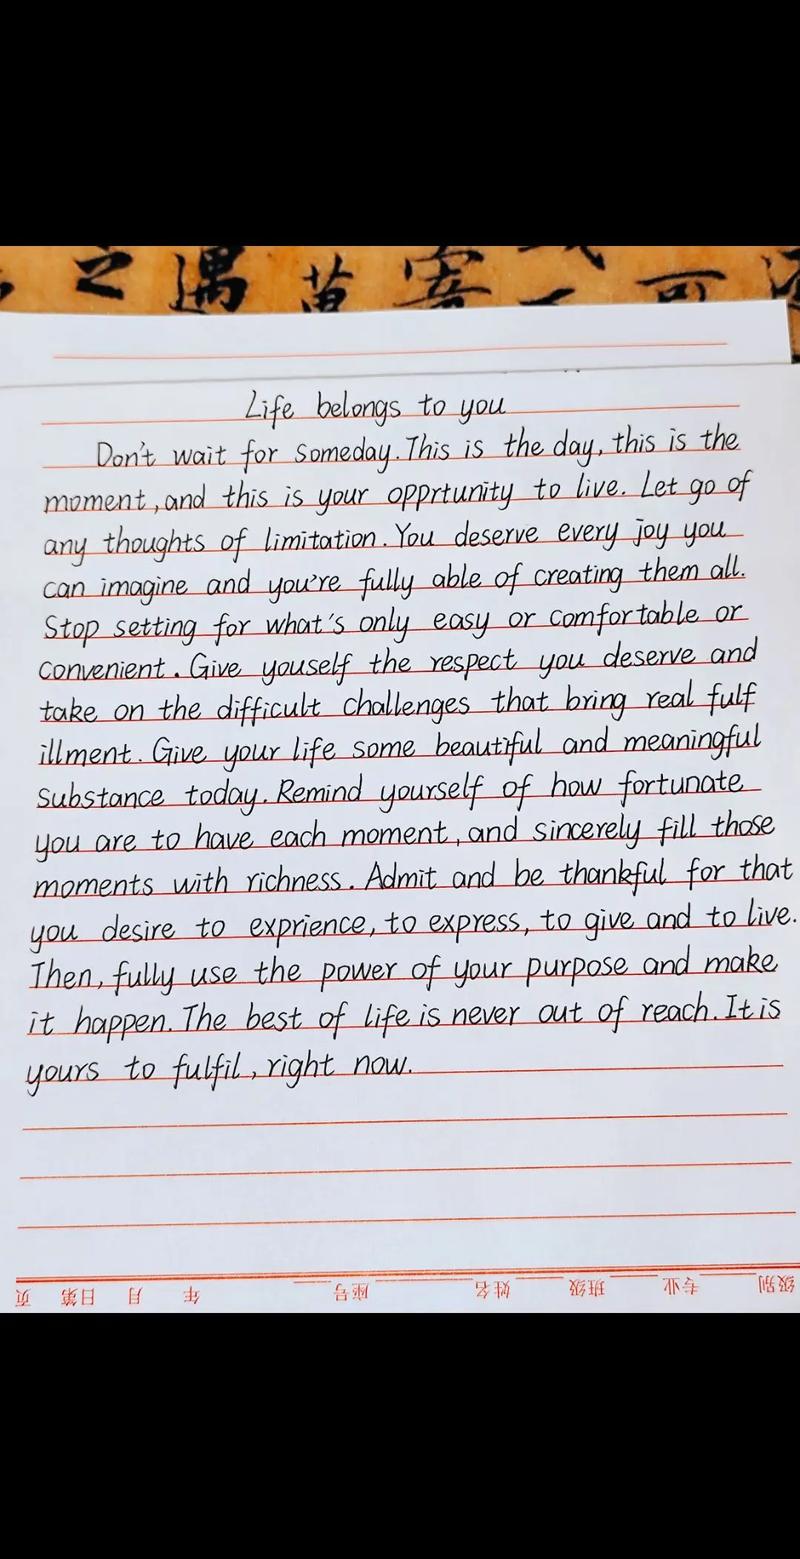 之遇黄寄可
Life belongs to you
Don't wait for someday. This is the day, this is the
moment, and this is your opprtunity to live. Let go of
any thoughts of limitation. You deserve every joy you
can imagine and you're fully able of creating them all.
Stop setting for what's only easy or comfortable or
convenient. Give youself the respect you deserve and
take on the difficult challenges that bring real fulf
illment. Give your life some beautiful and meaningful
substance today. Remind yourself of how fortunate
you are to have each moment, and sincerely fill those
moments with richness. Admit and be thankful for that
you desire to exprience, to express, to give and to live.
Then, fully use the power of your purpose and make
it happen. The best of life is never out of reach. It is
yours to fulfil, right now.
级别 专业 班级 姓名 座号 年 月 日第 页